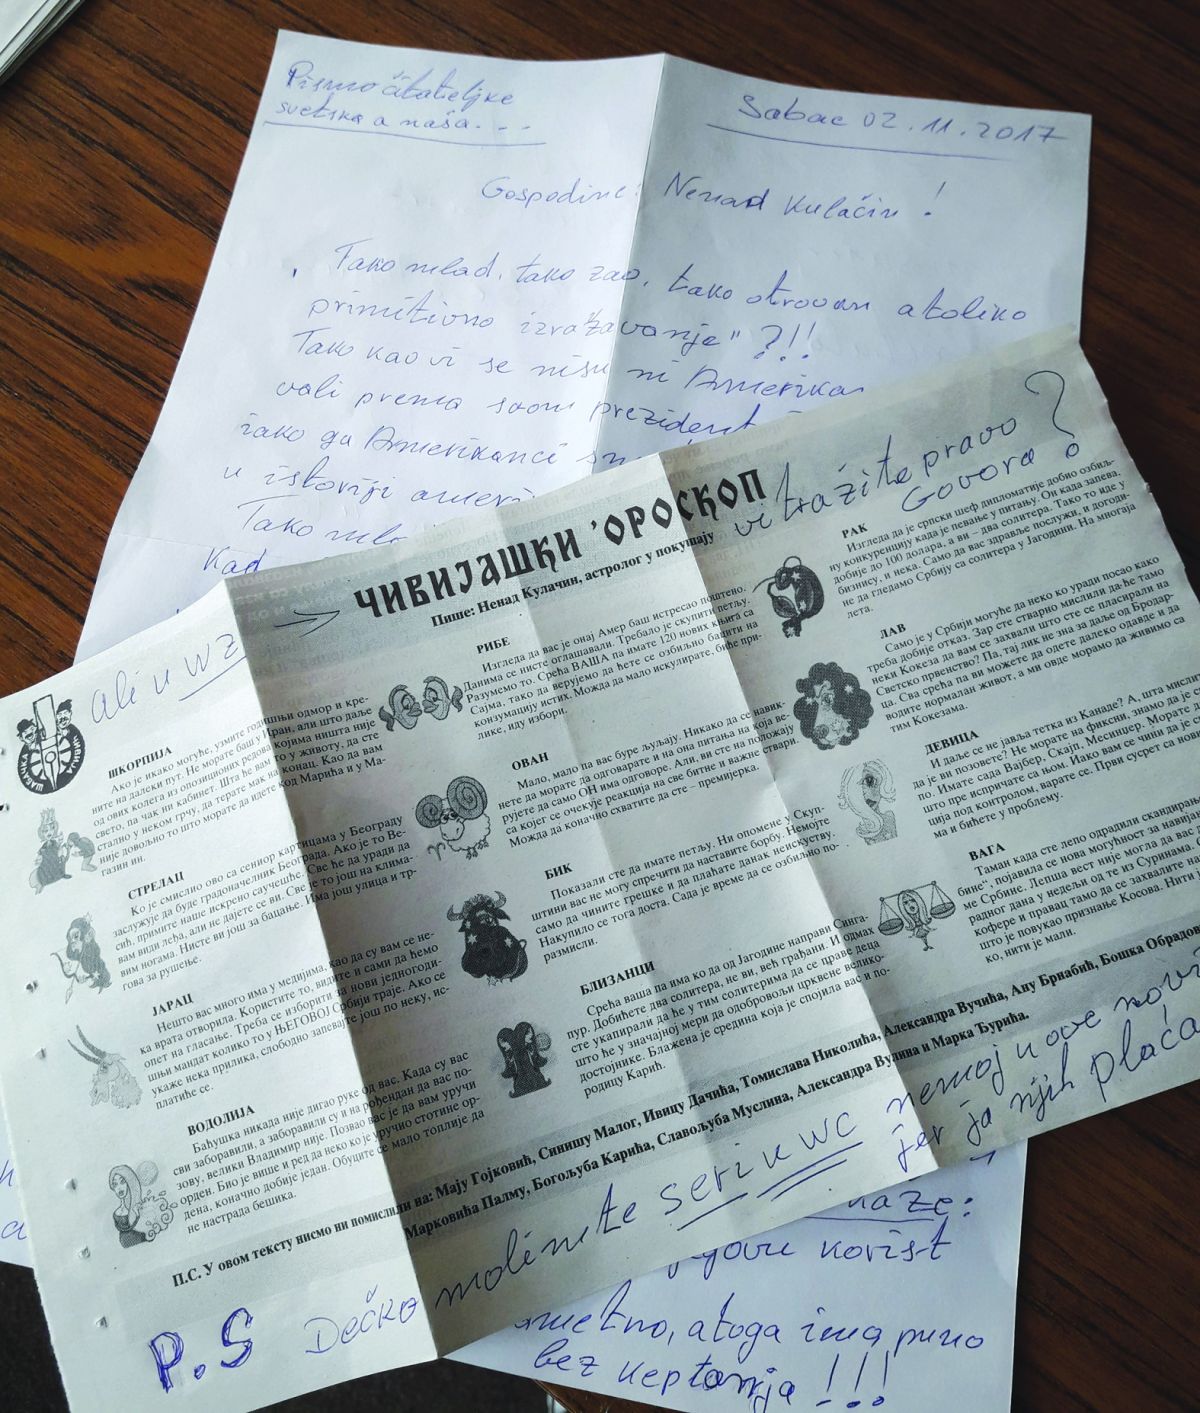 Pismo čitateljke
svetska a naša...
Sabac 02.11.2017
Gospodine: Nenad Kulačin!
Tako mlad, tako zao, tako otrovan a toliko
primitivno izražavanje" ?!!
Tako kao vi se nisu ni Amerika
vali prema svom prezident
iako ga Amerikanci
u istoriji ameri
Tako
Kad
ali u WZ
vi tražite pravo
Govora?
ЧИВИЈАШКИ 'ОРОСКОП
Пише: Ненад Кулачин, астролог у покушају
ШКОРПИЈА
Ако је икако могуће, узмите годишњи одмор и кре-
ните на далеки пут. Не морате баш у Иран, али што даље
од ових колега из опозиционих редова којима ништа није
свето, па чак ни кабинет. Шта ће вам то у животу, да сте
стално у неком грчу, да терате мак на конац. Као да вам
није довољно то што морате да идете код Марића и у Ма-
газин ин.
СТРЕЛАЦ
Ко је смислио ово са сениор картицама у Београду
заслужује да буде градоначелник Београда. Ако је то Ве-
сић, примите наше искрено саучешће. Све ће да уради да
вам види леђа, али не дајете се ви. Све је то још на клима-
вим ногама. Нисте ви још за бацање. Има још улица и тр-
гова за рушење.
ЈАРАЦ
Нешто вас много има у медијима, као да су вам се не-
ка врата отворила. Користите то, видите и сами да ћемо
опет на гласање. Треба се изборити за нови једногоди-
шњи мандат колико то у ЊЕГОВОЈ Србији траје. Ако се
укаже нека прилика, слободно запевајте још по неку, ис-
платиће се.
ВОДОЛИЈА
Баћушка никада није дигао руке од вас. Када су вас
сви заборавили, а заборавили су и на рођендан да вас по-
зову, велики Владимир није. Позвао вас је да вам уручи
орден. Био је више и ред да неко ко је уручио стотине ор-
дена, коначно добије један. Обуците се мало топлије да
не настрада бешика.
РИБЕ
Изгледа да вас је онај Амер баш истресао поштено.
Данима се нисте оглашавали. Требало је скупити петљу.
Разумемо то. Срећа ВАША па имате 120 нових књига са
Сајма, тако да верујемо да ћете се озбиљно бацити на
конзумацију истих. Можда да мало искулирате, биће при-
лике, иду избори.
ОВАН
Мало, мало па вас буре љуљају. Никако да се навик-
нете да морате да одговарате и на она питања на која ве-
рујете да само ОН има одговоре. Али, ви сте на положају
са којег се очекује реакција на све битне и важне ствари.
Можда да коначно схватите да сте – премијерка.
БИК
Показали сте да имате петљу. Ни опомене у Скуп-
штини вас не могу спречити да наставите борбу. Немојте
само да чините грешке и да плаћате данак неискуству.
Накупило се тога доста. Сада је време да се озбиљно по-
размисли.
БЛИЗАНЦИ
Срећа ваша па има ко да од Јагодине направи Синга-
пур. Добићете два солитера, не ви, већ грађани. И одмах
сте укапирали да ће у тим солитерима да се праве деца
што ће у значајној мери да одобровољи црквене велико-
достојнике. Блажена је средина која је спојила вас и по-
родицу Карић.
РАК
Изгледа да је српски шеф дипломатије добио озбиљ-
ну конкуренцију када је певање у питању. Он када запева,
добије до 100 долара, а ви – два солитера. Тако то иде у
бизнису, и нека. Само да вас здравље послужи, и догоди-
не да гледамо Србију са солитера у Јагодини. На многаја
лета.
ЛАВ
Само је у Србији могуће да неко ко уради посао како
треба добије отказ. Зар сте стварно мислили да ће тамо
неки Кокеза да вам се захвали што сте се пласирали на
Светско првенство? Па, тај лик не зна за даље од Бродар-
ца. Сва срећа па ви можете да одете далеко одавде и да
водите нормалан живот, а ми овде морамо да живимо са
тим Кокезама.
ДЕВИЦА
И даље се не јавља тетка из Канаде? А, шта мисли
да је ви позовете? Не морате на фиксни, знамо да је с
по. Имате сада Вајбер, Скајп, Месинџер. Морате
што пре испричате са њом. Иако вам се чини да је с
ција под контролом, варате се. Први сусрет са нов
ма и бићете у проблему.
ВАГА
Таман када сте лепо одрадили скандиран
бине", појавила се нова могућност за навија
ме Србине. Лепша вест није могла да вас
радног дана у недељи од те из Суринама. С
кофере и правац тамо да се захвалите на
што је повукао признање Косова. Нити ј
ко, нити је мали.
П.С. У овом тексту нисмо ни помислили на: Мају Гојковић, Синишу Малог, Ивицу Дачића, Томислава Николића, Александра Вучића, Ану Брнабић, Бошка Обрадов
Марковића Палму, Богољуба Карића, Славољуба Муслина, Александра Вулина и Марка Ђурића.
P.S Dečko molim te seri u WC nemoj u ove novi
jer ja njih plaća
naze:
govu korist
metno, a toga ima puno
bez keptanja !!!